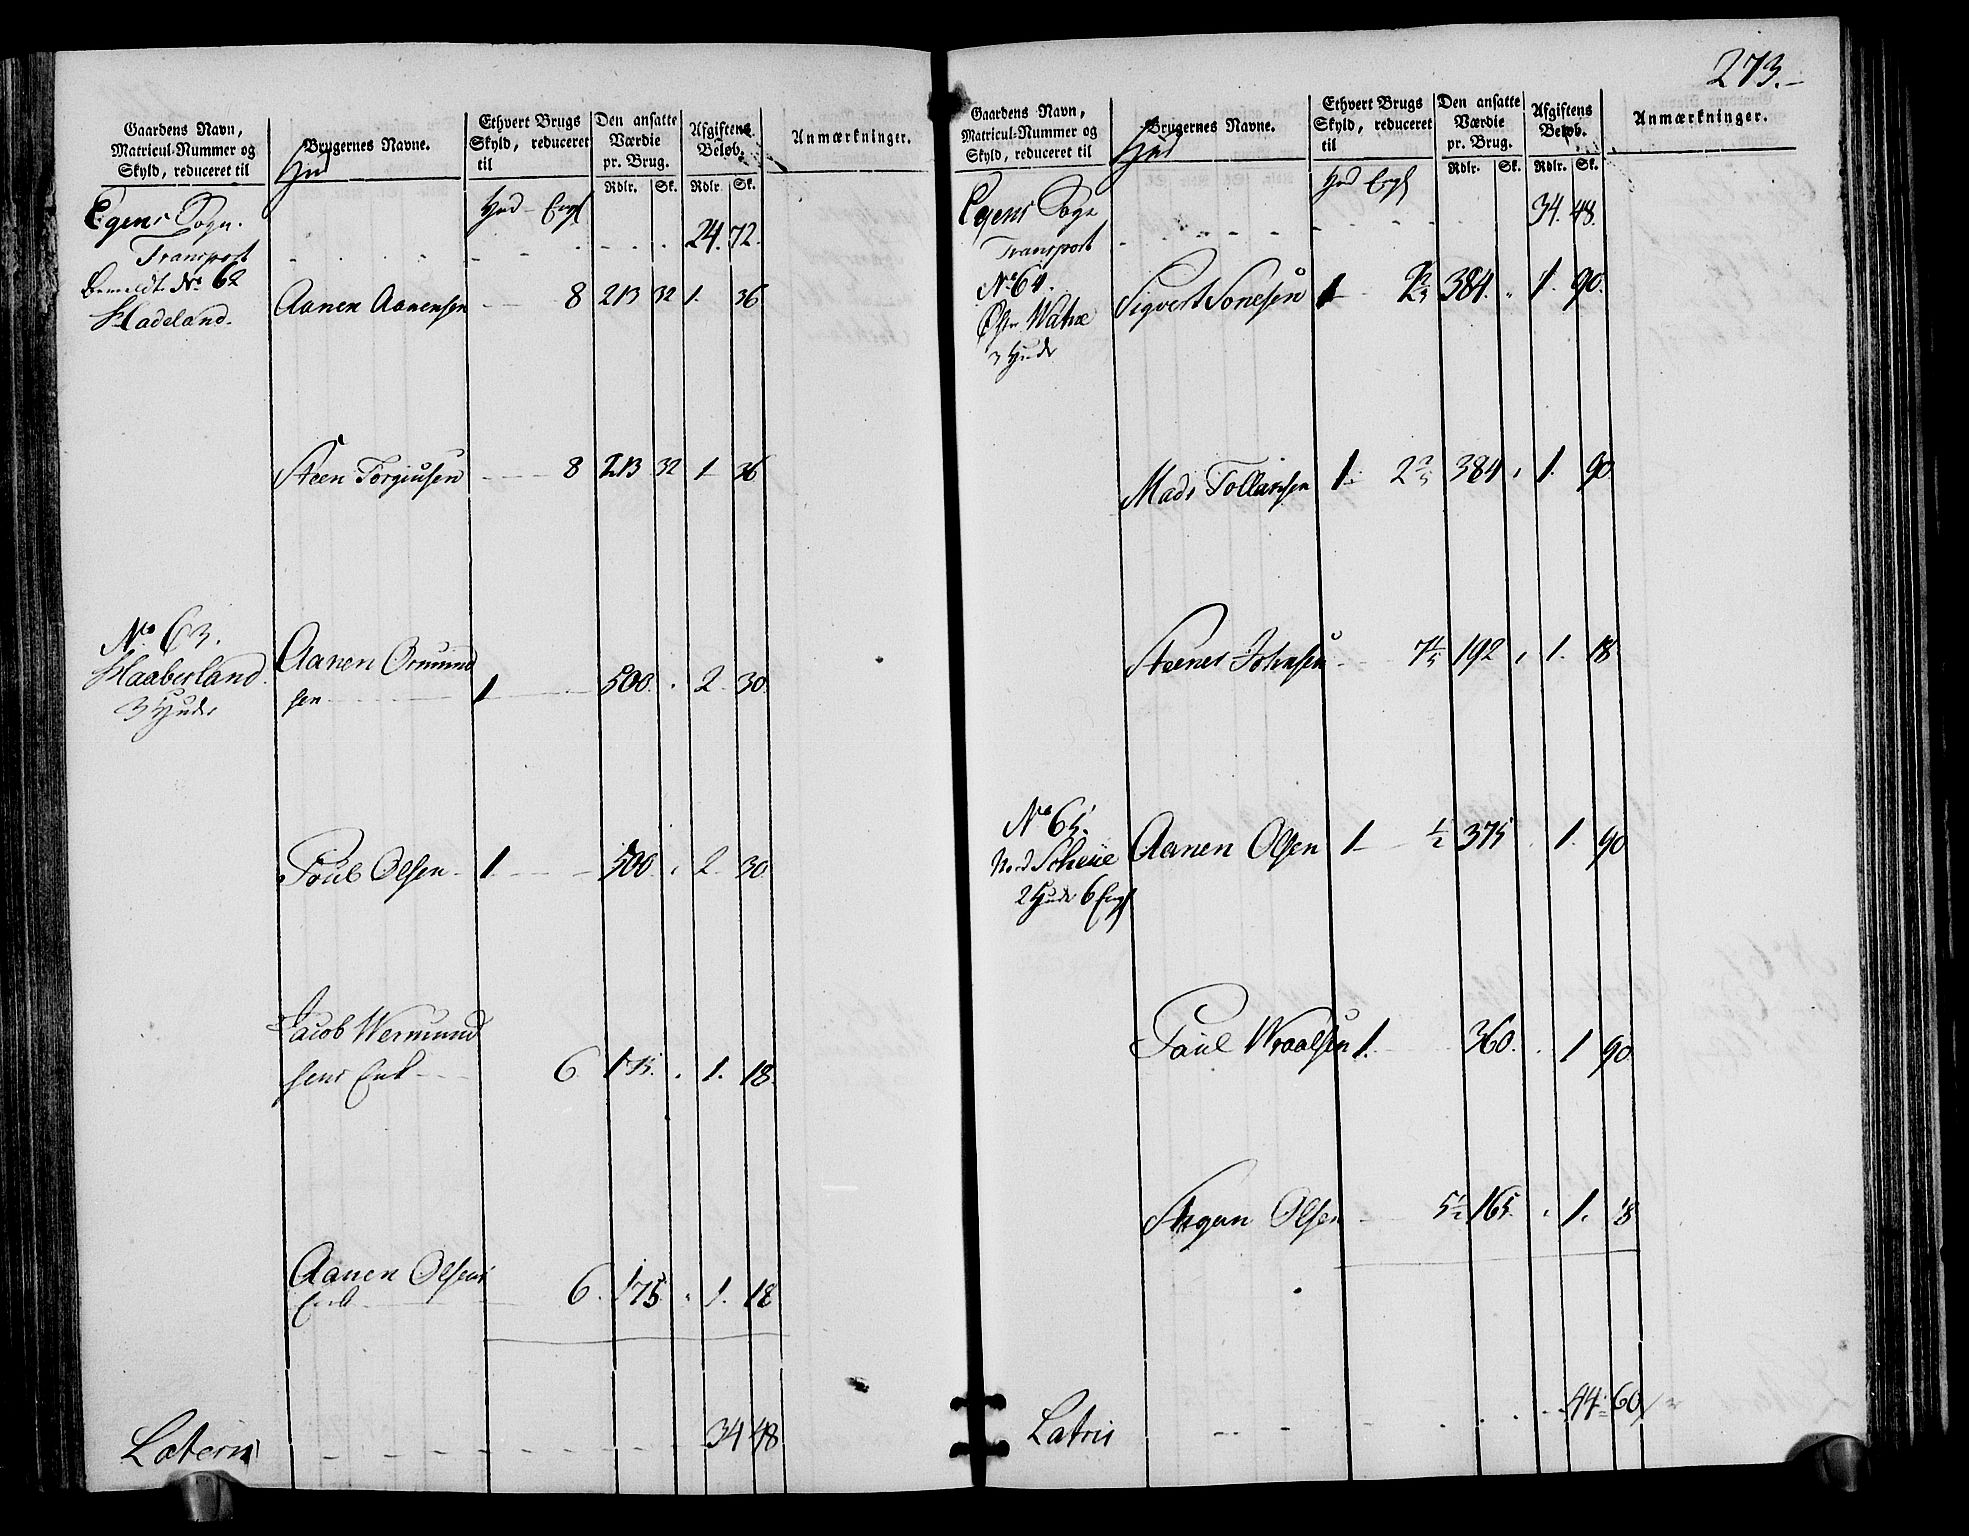 Gaardens Navn,
Matricul-Nummer og
Skyld, reduceret til
Brugernes Navne.
Hud
Ethvert Brugs
Skyld, reduceret
til
Den ansatte
Værdie
pr. Brug.
Rdlr. Sk.
Afgiftens
Beløb.
Rdlr. Sk.
Anmærkninger.
Hud Eng
Egens Sogn.
Transport 24. 72.
No 62
Hadeland. Aanen Aanensen 8 213 32 1. 36
Steen Torgiusen 8 213 32 1 36
No 63.
Haaberland. Aanen Osmund
3 Huder sen 1 500. 2 30
Poul Olsen 1 500. 2 30
Jacob Wermund
sens Enk 6 175. 1. 18.
Aanen Olsens
Enk 6. 175 1. 18
Lateris 34 48
273.
Gaardens Navn,
Matricul-Nummer og
Skyld, reduceret til
Brugernes Navne.
Hud
Ethvert Brugs
Skyld, reduceret
til
Den ansatte
Værdie
pr. Brug.
Rdlr. Sk.
Afgiftens
Beløb.
Rdlr. Sk.
Anmærkninger.
Hud Eng
Egens Sogn
Transport 34. 48.
No 64.
Watne Sigvert Sonesen 1 2 2/5 384. 1. 90.
3 Huder
Mads Tollavsen 1 2 2/5 384 1. 90
Steener Johnsen 7 1/5 192 1. 18
No 65.
Nord Scheie Aanen Olsen 1 1/2 375 1. 90
2 Huder 6 Eng
Poul Wraalsen 1. 360. 1 90
Olsen 5 1/2 165. 1. 18
Latris 44. 60